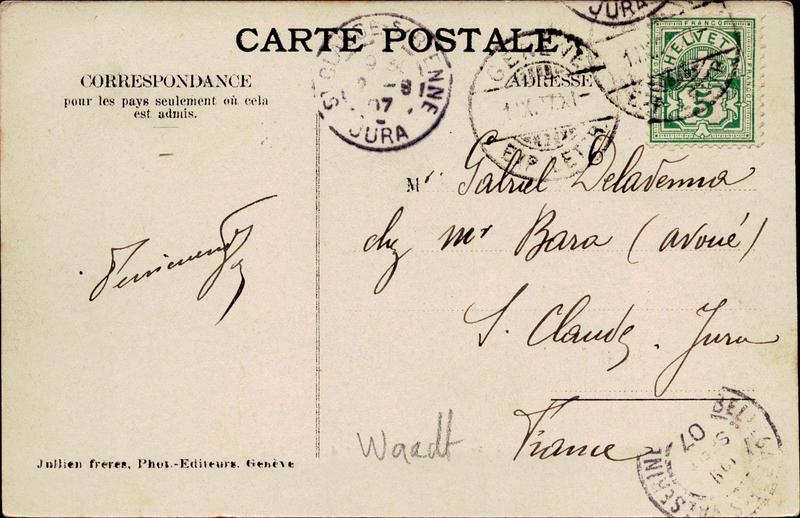 CARTE POSTALE
CORRESPONDANCE
pour les pays seulement où cela
est admis.
ADRESSE
FRANCO
HELVETIA
5
GENÈVE
1.IX.07.XI-
EXP. LETT.
JURA
07
JURA
Mr. Gabriel Delavenna
chez Mr Bara (avoué)
S. Claude. Jura
France
07
Waadt
Jullien frères, Phot.-Editeurs. Genève